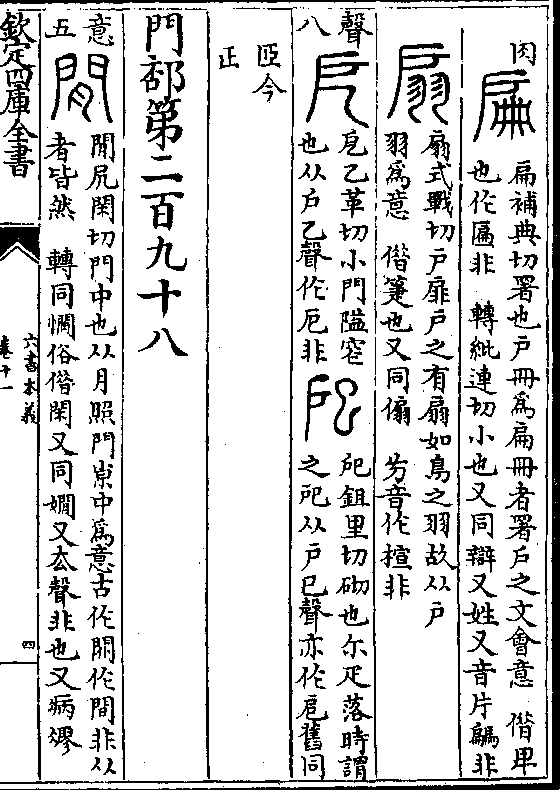 㕯
扁
扁補典切署也戶冊為扁冊者署戶之文會意 借卑
也作匾非 轉紕連切小也又同辯又姓又音片騙非
扇
扇式戰切戶扉戶之有扇如鳥之羽故从戶
羽為意 借箑也又同傓 旁音作䄠非
聲
八
戹
戹乙革切小門隘窄
也从戶乙聲作厄非
㞒
戺鉏里切砌也尒疋落時謂
之戺从戶巳聲亦作㞒舊同
𦣞今
正
門部第二百九十八
意
五
閒
閒凥閑切門中也从月照門𡭽中為意古作𨳢作間非从
者皆然 轉同憪俗借閑又同嫺又去聲非也又病瘳
欽定四庫全書
六書本義
卷十一
四